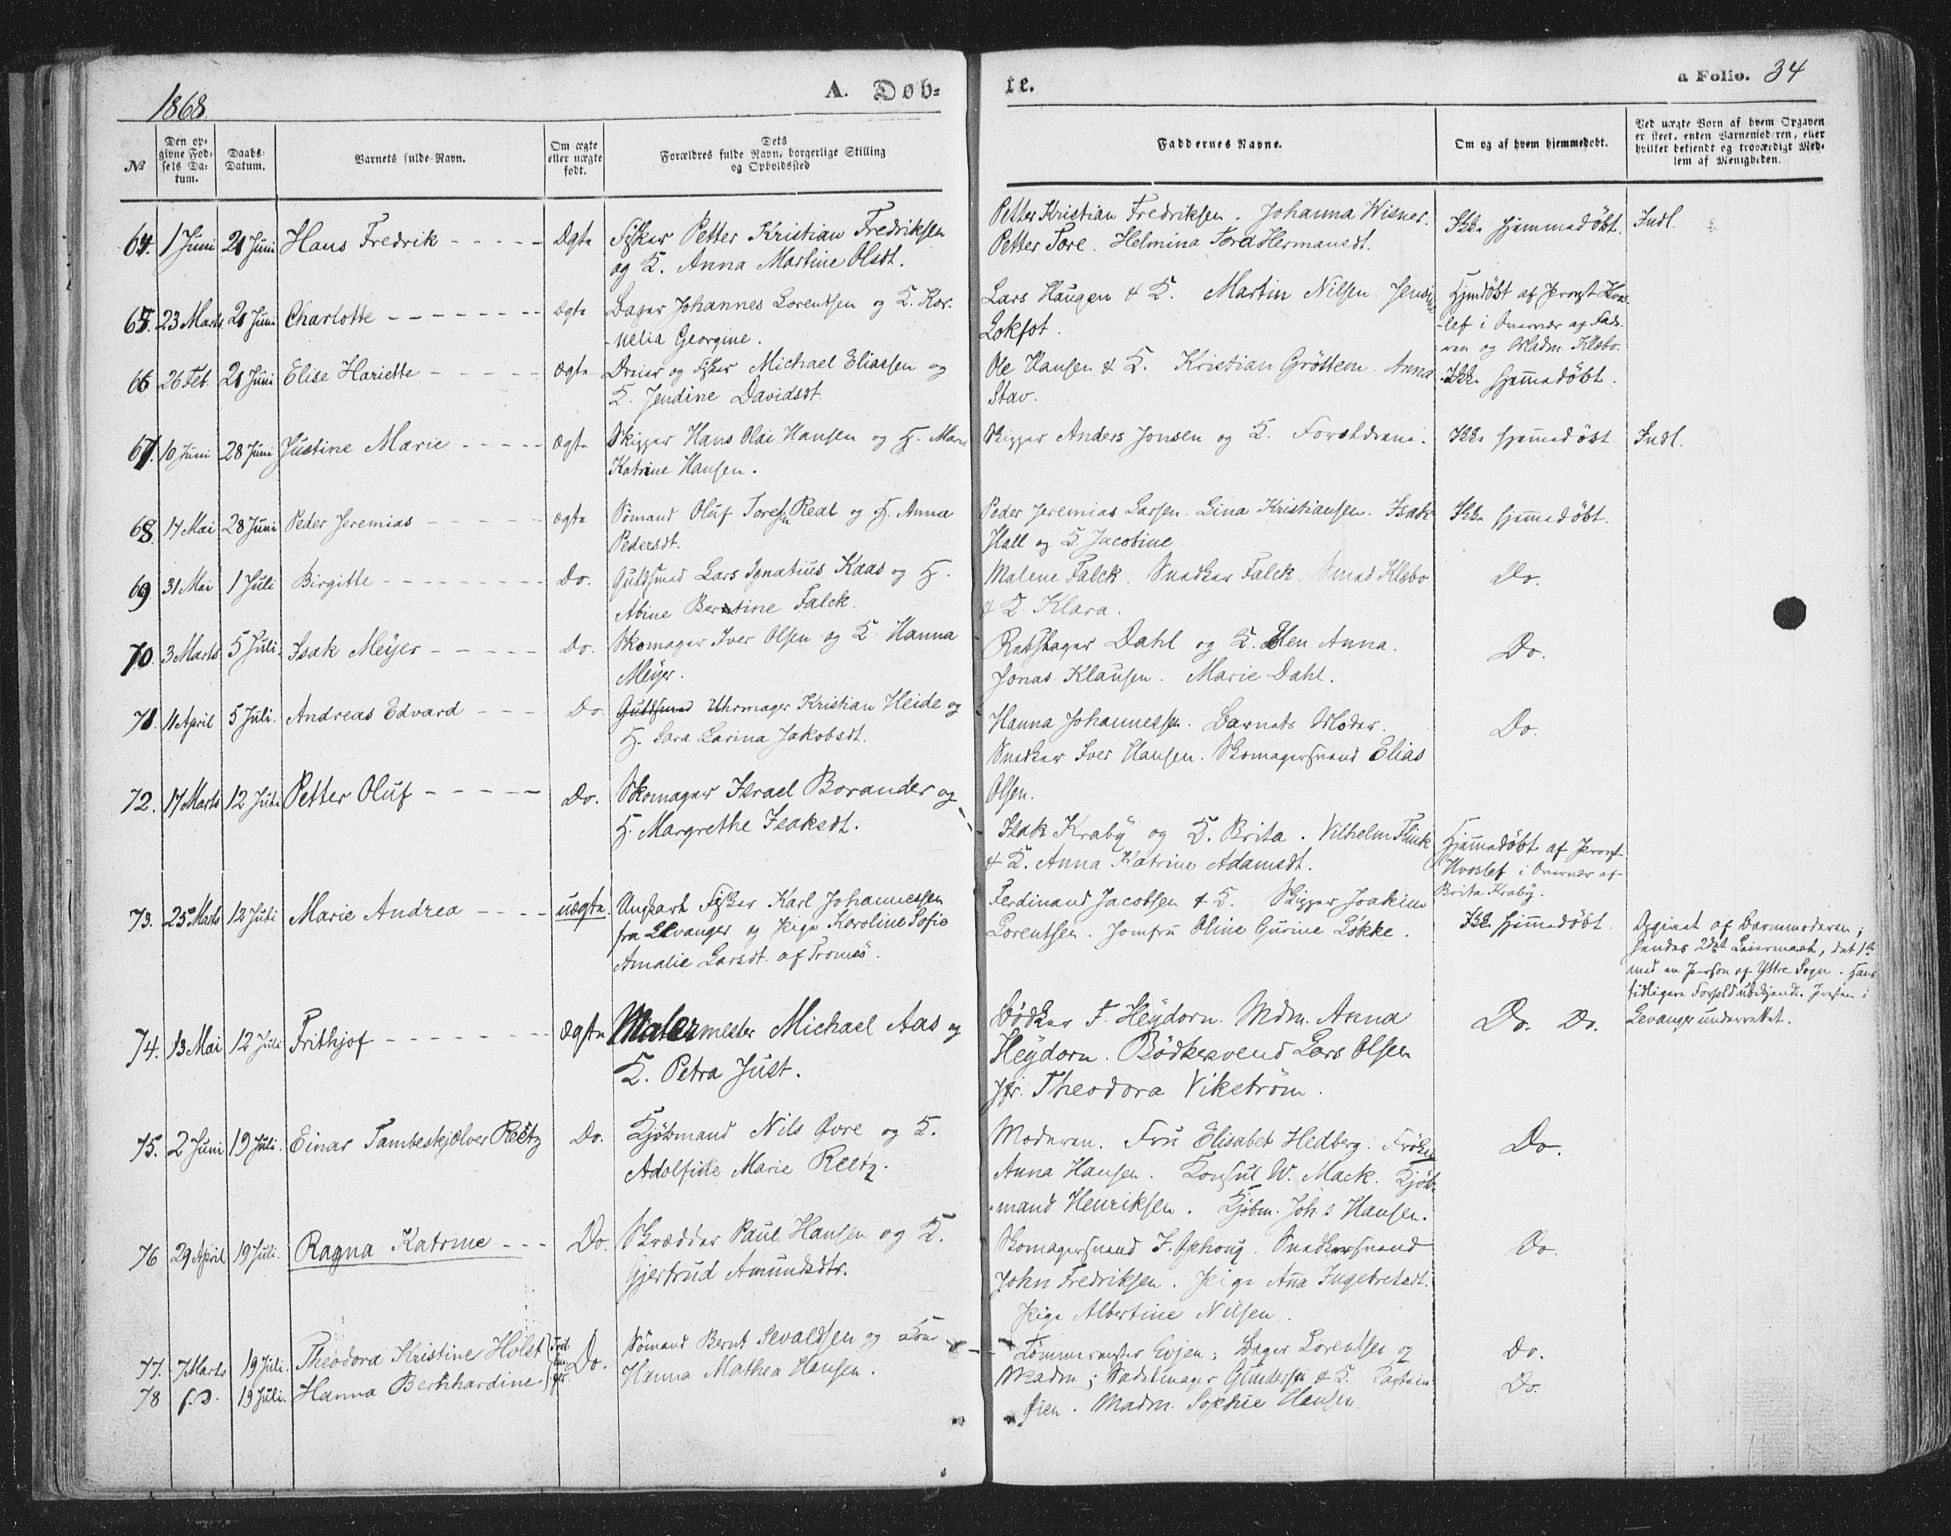 1868.
A. Døb-
te.
a Folio. 34
№
Den op-
givne Fød-
sels Da-
tum.
Daabs-
Datum.
Barnets fulde Navn.
Om ægte
eller uægte
født.
Dets
Forældres fulde Navn, borgerlige Stilling
og Opholdssted
Faddernes Navne.
Om og af hvem hjemmedøbt.
Ved uægte Børn af hvem Opgaven
er skeet, enten Barnemoderen, eller
hvilket bekjendt og troværdigt Med-
lem af Menigheden.
64. 1 Juni 21 Juni Hans Fredrik - - - - Ægte Fisker Petter Kristian Fredriksen
og K. Anna Martine Olsdt.
Petter Kristian Fredriksen. Johanna Wisner.
Petter Tore. Helmina Tora Hermansdt.
Ikke hjemmedøbt. Indl.
65. 23 Marts 21 Juni Charlotte - - - - - - - ægte Bager Johannes Lorentsen og K. Kor-
nelia Georgine.
Lars Haugen & K. Martin Nilsen.
Lokfot.
Hjemdøbt af Provst Hvos-
lef i Overvær af Fade-
ren og Madm. Klæbo.
66 26 Feb. 21 Juni Elise Hariette - - - - - ægte Dreier og Fisker Michael Eliassen og
K. Jendine Davidsdt.
Ole Hansen & K. Kristian Grøttem. Anna
Stav.
Ikke hjemmedøbt.
67. 10 Juni 28 Juni Justine Marie - - - - ægte Skipper Hans Olai Hansen og H. Mare
Katrine Hansen.
Skipper Anders Jonsen og K. Forældrene.
Ikke hjemmedøbt Indl.
68. 17 Mai 28 Juni Peder Jeremias - - - - - ægte Sømand Oluf Toresen Reat og H. Anna
Pedersdt.
Peder Jeremias Larsen. Lina Kristiansen. Isak
Hall og K. Jacobine
Ikke hjemmedøbt.
69 31 Mai 1 Juli Birgitte - - - - - - - Do. Guldsmed Lars Ignatius Kaas og H.
Abine Berntine Falck.
Malene Falck. Snedker Falck. Smed Klæbo
& K. Klara.
Do.
70. 3 Marts 5 Juli. Isak Meyer - - - - - Do. Skomager Iver Olsen og K. Hanna
Meyer.
Rebslager Dahl og K. Elen Anna.
Jonas Klausen. Marie Dahl.
Do.
71. 11 April 5 Juli. Andreas Edvard - - - Do. Guldsmed Uhrmager Kristian Heide og
H. Sara Larina Jakobsdt.
Hanna Johannessen. Barnets Moder.
Snedker Iver Hansen. Skomagersvend Elias
Olsen.
Do.
72. 17 Marts 12 Juli Petter Oluf - - - - - Do. Skomager Israel Borander og
H. Margrethe Isaksdt.
Isak Kraby og K. Brita. Vilhelm Flink
& K. Anna Katrine Adamsdt.
Hjemmedøbt af Provst
Hvoslef i Overvær af
Brita Kraby.
73. 25 Marts 12 Juli Marie Andrea - - - - uægte. Ungkarl Fisker Karl Johannessen
fra Levanger og Pige Karoline Sofie
Amalie Larsdt. af Tromsø.
Ferdinand Jacobsen & K. Skipper Joakim
Lorentsen. Jomfru Oline Gurine Løkke.
Ikke hjemmedøbt.
Opgivet af Barnmoderen;
hendes 2det Leiermaal, det 1ste
med en Person af Yttre Sogn. Hans
tidligere Forhold ubekjendt. Presten i
Levanger underrettet.
74. 13 Mai 12 Juli Frithjof - - - - - - - ægte Malermester Michael Aas og
K. Petra Just.
Bødker F. Heydorn. Mdm. Anna
Heydorn. Bødkersvend Lars Olsen
Jfr. Theodora Vikstrøm.
Do. Do.
75. 2 Juni 19 Juli. Einar Tambeskjælver Reetz Do. Kjøbmand Nils Øvre og K.
Adolfine Marie Reetz.
Moderen. Fru Elisabet Hedberg. Frøken
Anna Hansen. Konsul W. Mack. Kjøb-
mand Henriksen. Kjøbm. Joh.s Hansen.
Do.
76 29 April 19 Juli. Ragna Katrine - - - Do. Skrædder Paul Hansen og K.
Gjertrud Amundsdtr.
Skomagersvend J. Ophoug. Snedkersvend
John Fredriksen. Pige Ana Ingebretsdt.
Pige Albertine Nilsen.
Do.
77. 7 Marts 19 Juli. Theodora Kristine Holst Do. Sømand Bernt Sevaldsen og Kone
Hanna Mathea Hansen.
Tømmermester Evjen; Bager Lorentsen og
Madm; Gundersen & K.
Madm. Sophie Hansen.
Do.
78 s.D. 19 Juli. Hanna Bernhardine
Do.